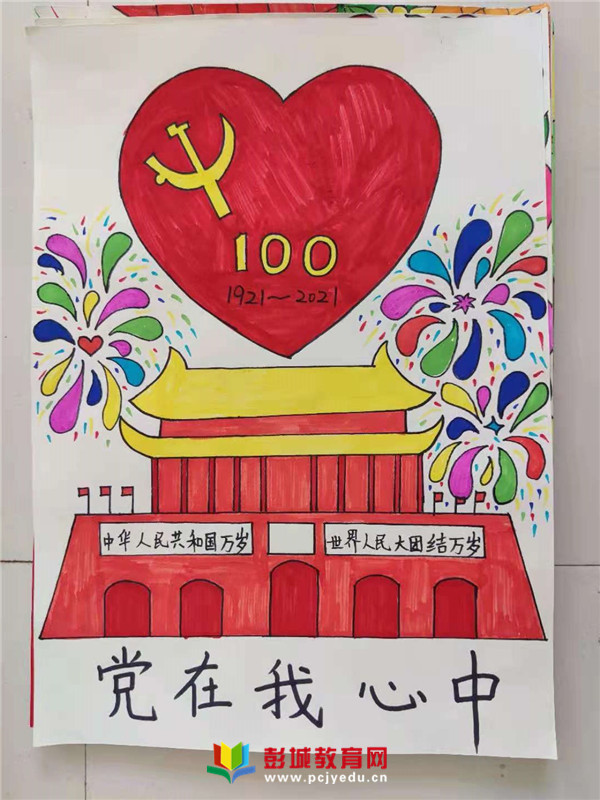 100
1921～2021
中华人民共和国万岁
世界人民大团结万岁
党在我心中
彭城教育网
www.pcjyedu.cn